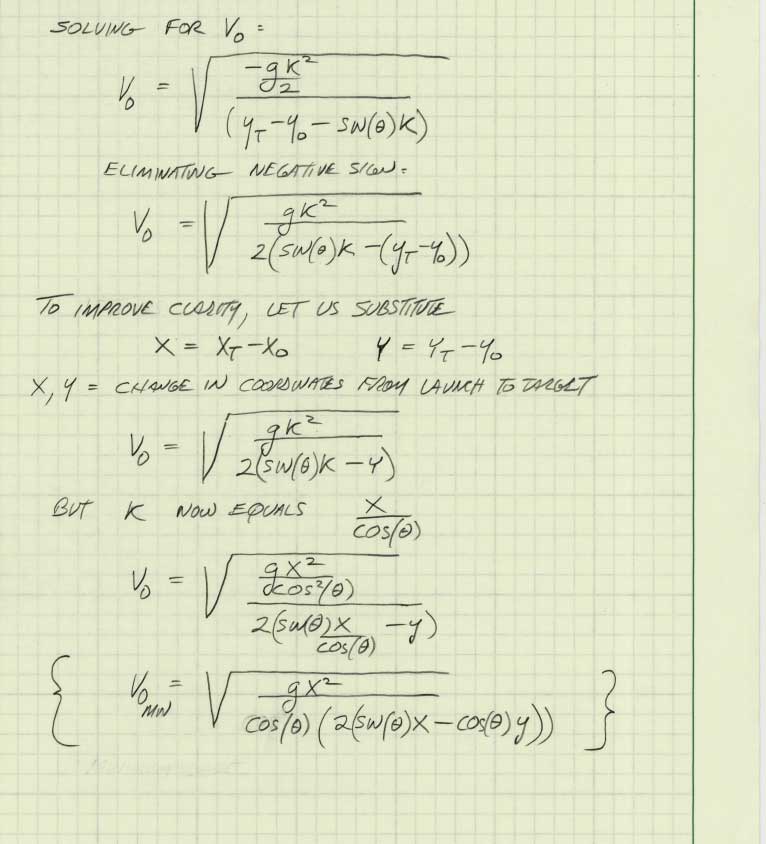 SOLVING FOR V₀ =
V₀ = √( (-gK²/2) / (y_T - y₀ - SIN(θ)K) )
ELIMINATING NEGATIVE SIGN =
V₀ = √( gK² / 2(SIN(θ)K - (y_T - y₀)) )
TO IMPROVE CLARITY, LET US SUBSTITUTE
X = X_T - X₀ Y = Y_T - Y₀
X, Y = CHANGE IN COORDINATES FROM LAUNCH TO TARGET
V₀ = √( gK² / 2(SIN(θ)K - Y) )
BUT K NOW EQUALS X / COS(θ)
V₀ = √( (gX² / COS²(θ)) / 2(SIN(θ)X / COS(θ) - y) )
{ V₀ MIN = √( gX² / COS(θ)(2(SIN(θ)X - COS(θ)y)) ) }